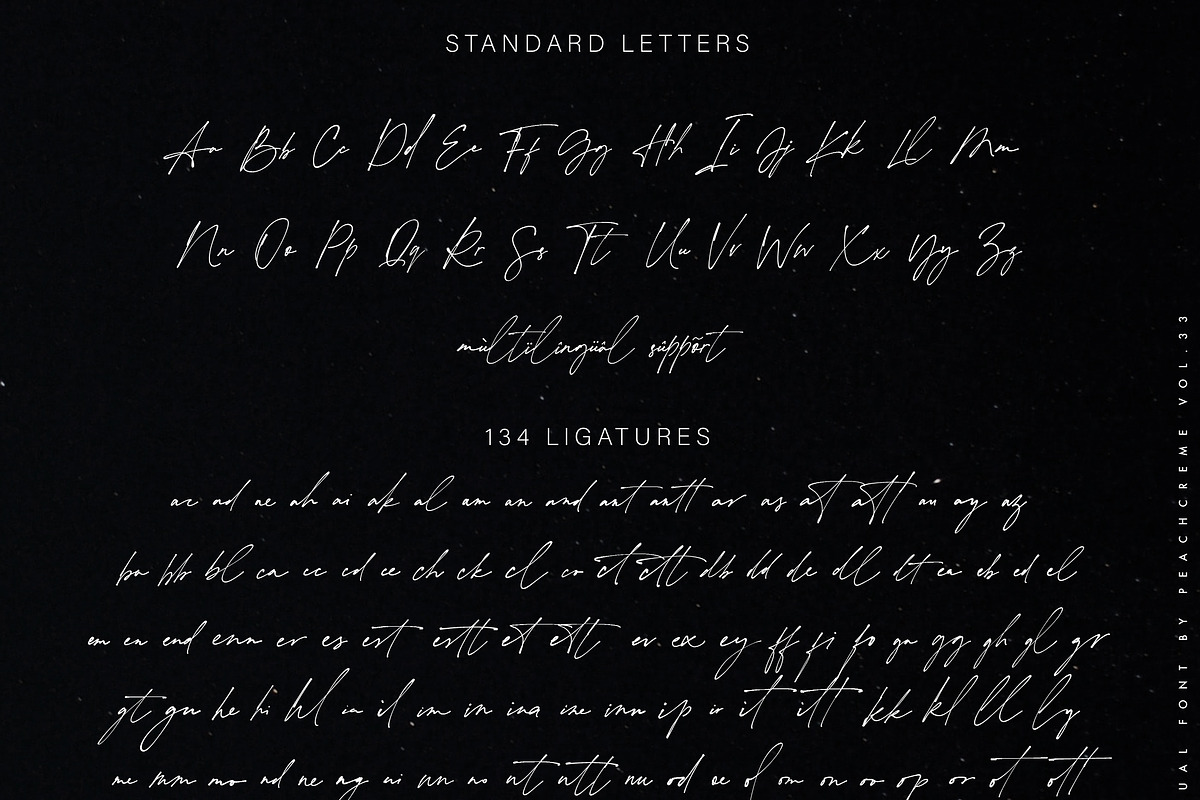 STANDARD LETTERS
Aa Bb Cc Dd Ee Ff Gg Hh Ii Jj Kk Ll Mm
Nn Oo Pp Qq Rr Ss Tt Uu Vv Ww Xx Yy Zz
mùltilîngüâl süppõrt
134 LIGATURES
ac ad ae ah ai ak al am an and ant antt ar as at att au ay az
ba bb bl ca cc cd ce ch ck cl co ct ctt db dd de dl dt ea eb ed el
em en end enn er es est estt et ett ev ex ey ff fi fo ga gg gh gl gr
gt gu he hi hl ia il im in ina ine inn ip ir it itt kk kl ll ly
me mm mo nd ne ng ni nn no nt ntt nu od oe of om on oo op or ot ott
UAL FONT BY PEACHCREME VOL. 33